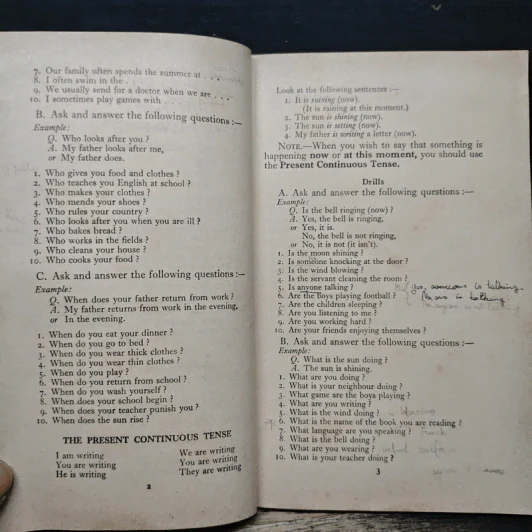 7. Our family often spends the summer at . . .
8. I often swim in the . . .
9. We usually send for a doctor when we are . . .
10. I sometimes play games with . . .
B. Ask and answer the following questions :—
Example:
Q. Who looks after you ?
A. My father looks after me,
or My father does.
1. Who gives you food and clothes ?
2. Who teaches you English at school ?
3. Who makes your clothes ?
4. Who mends your shoes ?
5. Who rules your country ?
6. Who looks after you when you are ill ?
7. Who bakes bread ?
8. Who works in the fields ?
9. Who cleans your house ?
10. Who cooks your food ?
C. Ask and answer the following questions :—
Example:
Q. When does your father return from work ?
A. My father returns from work in the evening,
or In the evening.
1. When do you eat your dinner ?
2. When do you go to bed ?
3. When do you wear thick clothes ?
4. When do you wear thin clothes ?
5. When do you play ?
6. When do you return from school ?
7. When do you wash yourself ?
8. When does your school begin ?
9. When does your teacher punish you ?
10. When does the sun rise ?
THE PRESENT CONTINUOUS TENSE
I am writing We are writing
You are writing You are writing
He is writing They are writing
2
Look at the following sentences :—
1. It is raining (now).
(It is raining at this moment.)
2. The sun is shining (now).
3. The sun is setting (now).
4. My father is writing a letter (now).
NOTE.—When you wish to say that something is
happening now or at this moment, you should use
the Present Continuous Tense.
Drills
A. Ask and answer the following questions :—
Example:
Q. Is the bell ringing (now) ?
A. Yes, the bell is ringing,
or Yes, it is.
No, the bell is not ringing,
or No, it is not (it isn't).
1. Is the moon shining ?
2. Is someone knocking at the door ?
3. Is the wind blowing ?
4. Is the servant cleaning the room ?
5. Is anyone talking ? yes, someone is talking.
6. Are the Boys playing football ? No one is talking
7. Are the children sleeping ?
8. Are you listening to me ?
9. Are you working hard ?
10. Are your friends enjoying themselves ?
B. Ask and answer the following questions :—
Example:
Q. What is the sun doing ?
A. The sun is shining.
1. What are you doing ?
2. What is your neighbour doing ?
3. What game are the boys playing ?
4. What are you writing ?
5. What is the wind doing ?
6. What is the name of the book you are reading ?
7. What language are you speaking ?
8. What is the bell doing ?
9. What are you wearing ?
10. What is your teacher doing ?
3